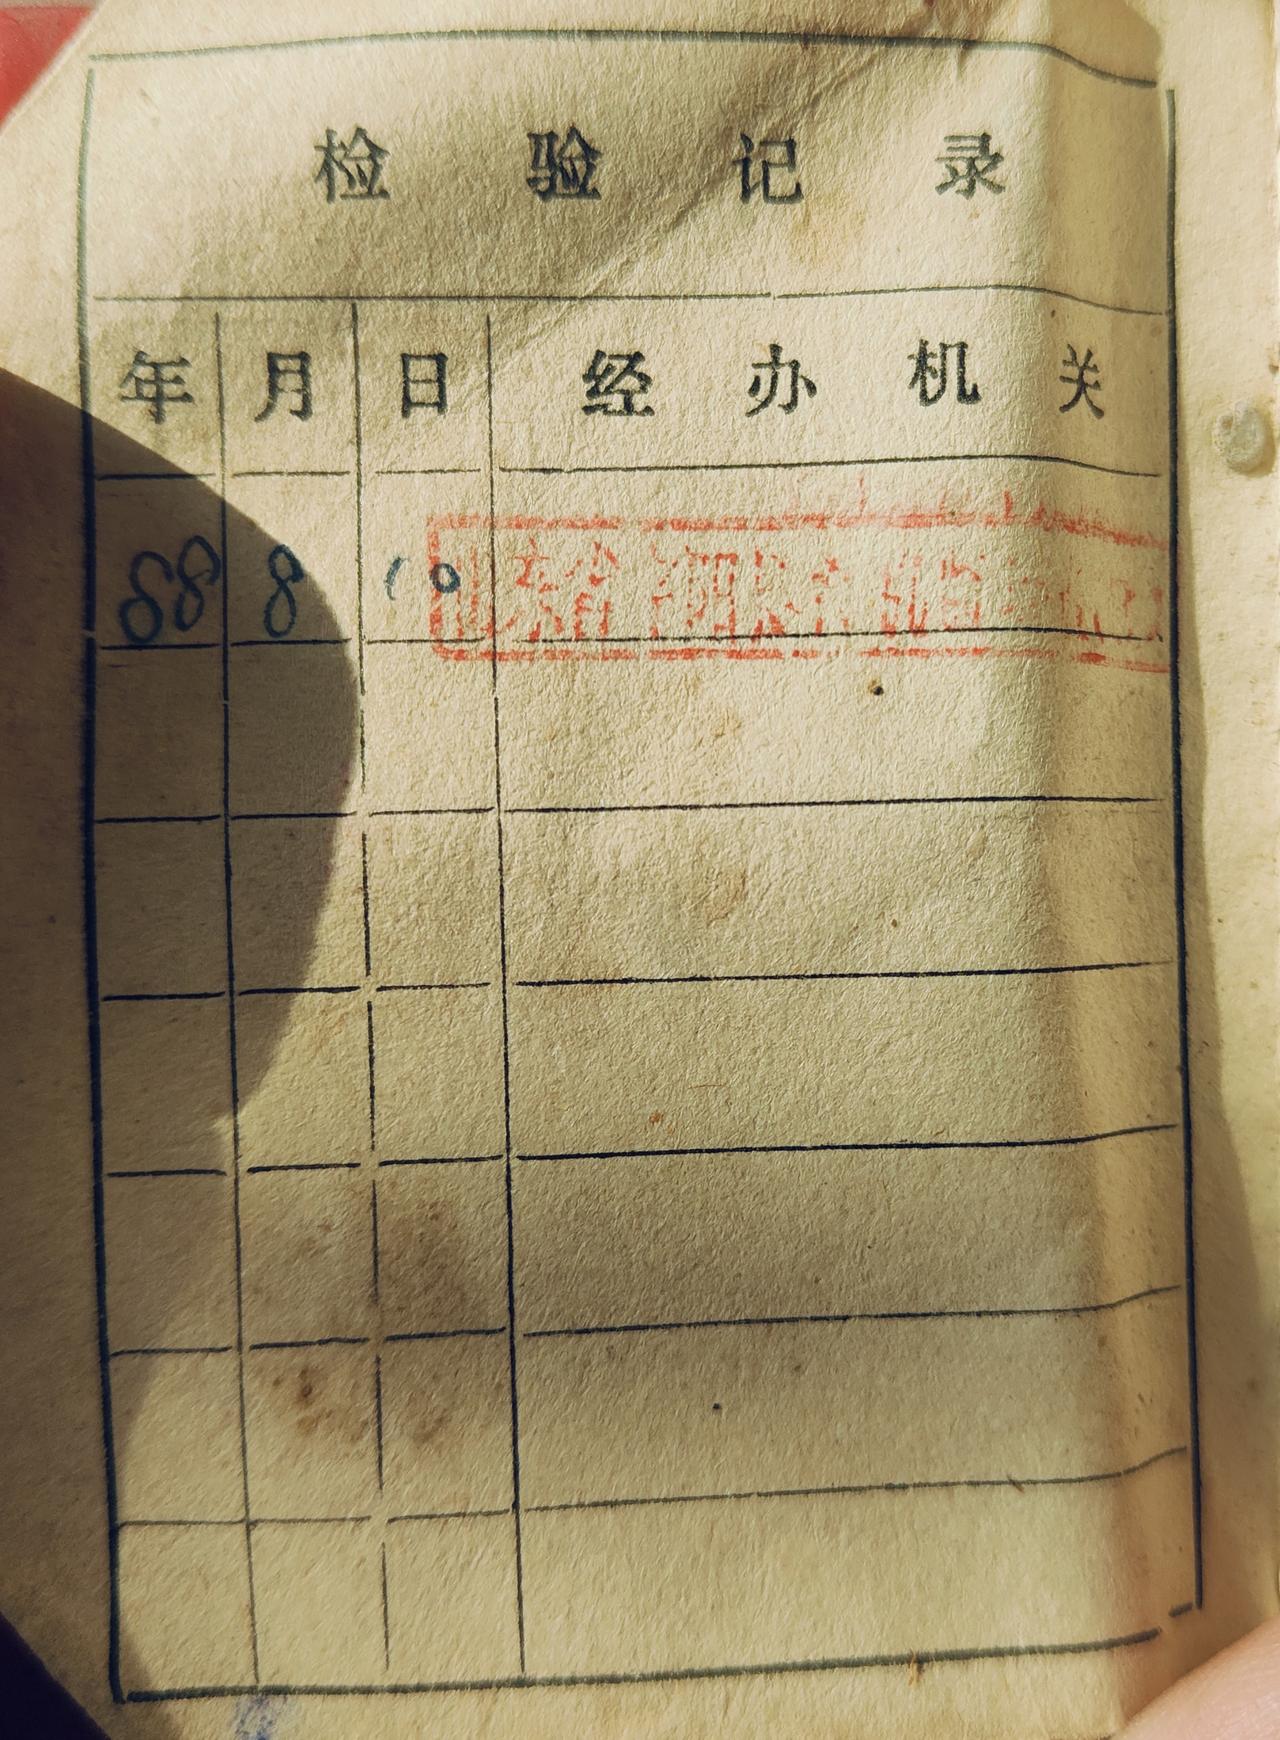 检验记录
年 月 日 经办机关
88 8 10 山东省